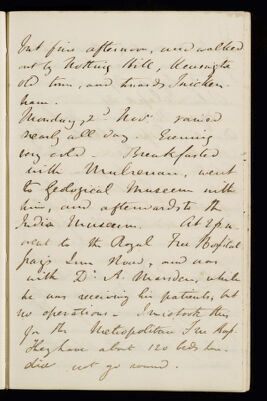 but fine afternoon, and walked
out by Notting Hill, Kensington
old town, and towards Twicken-
ham.
Monday, 2d Nov. rained
nearly all day. Evening
very cold. Breakfasted
with Mulrenan, went
to Geological Museum with
him, and afterwards to the
India Museum. At 2 p.m.
went to the Royal Free Hospital
Grays Inn Road, and was
with Dr. A. Marsden, while
he was receiving his patients, but
no operations. I mistook this
for the Metropolitan Free Hosp.
They have about 120 beds here.
did not go round.